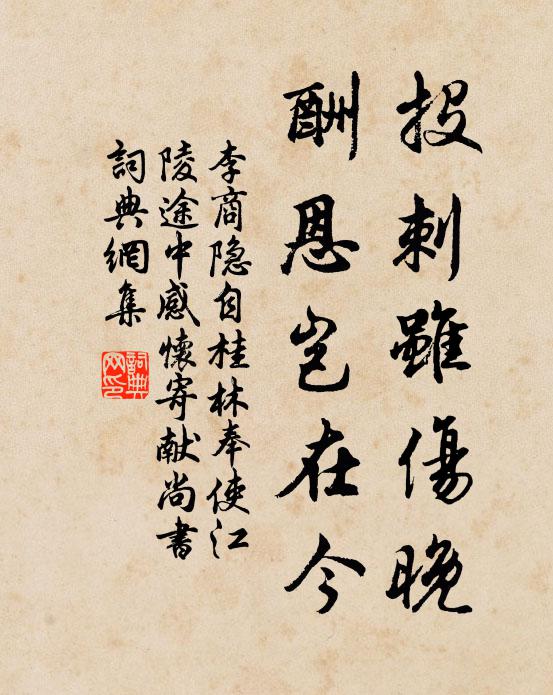 投刺雖傷晚
酬恩岂在今
李商隐自桂林奉使江
陵途中感懷寄献尚書
詞典網集
詞典网印